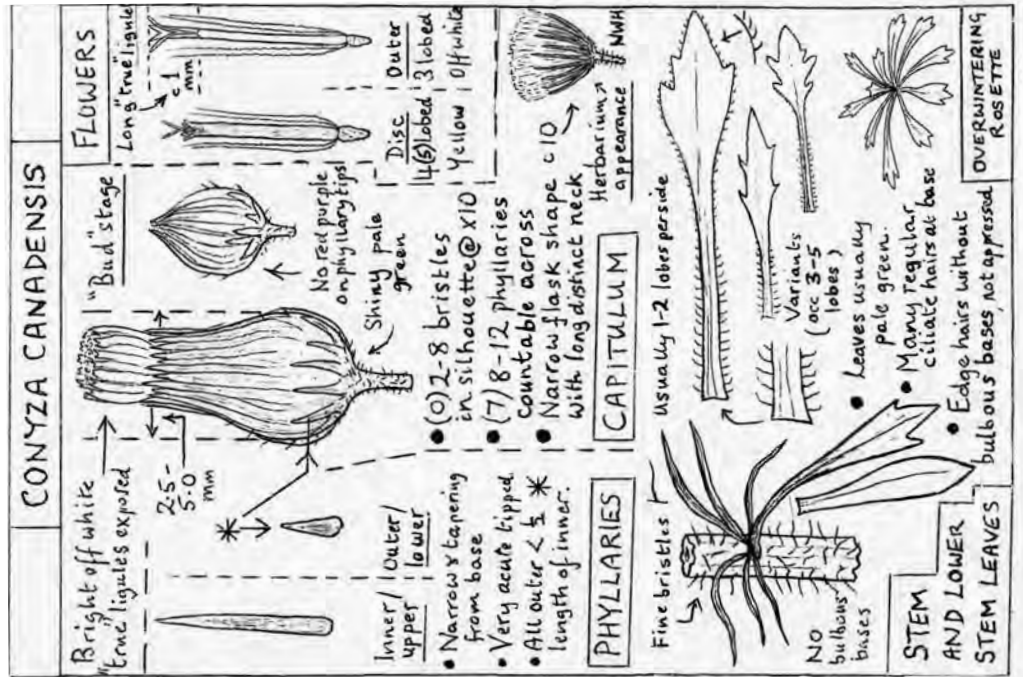 CONYZA CANADENSIS
Bright off white
"true" ligules exposed
2·5-
5·0
mm
"Bud" stage
No red purple
on phyllary tips
Shiny pale
green
FLOWERS
Long "true" ligule
< 1
mm
Disc
4(5) lobed
Yellow
Outer
3 lobed
Off white
Inner/
upper
Outer/
lower
• Narrow & tapering
from base
• Very acute tipped
• All outer < ½ *
length of inner.
PHYLLARIES
• (0) 2-8 bristles
in silhouette @ x10
• (7) 8-12 phyllaries
countable across
• Narrow flask shape
with long distinct neck
CAPITULUM
c10
Herbarium
appearance
NWH
Fine bristles
No
bulbous
bases
STEM
AND LOWER
STEM LEAVES
Usually 1-2 lobes per side
Variants
(occ 3-5
lobes)
• Leaves usually
pale green.
• Many regular
ciliate hairs at base
• Edge hairs without
bulbous bases, not appressed
OVERWINTERING
ROSETTE